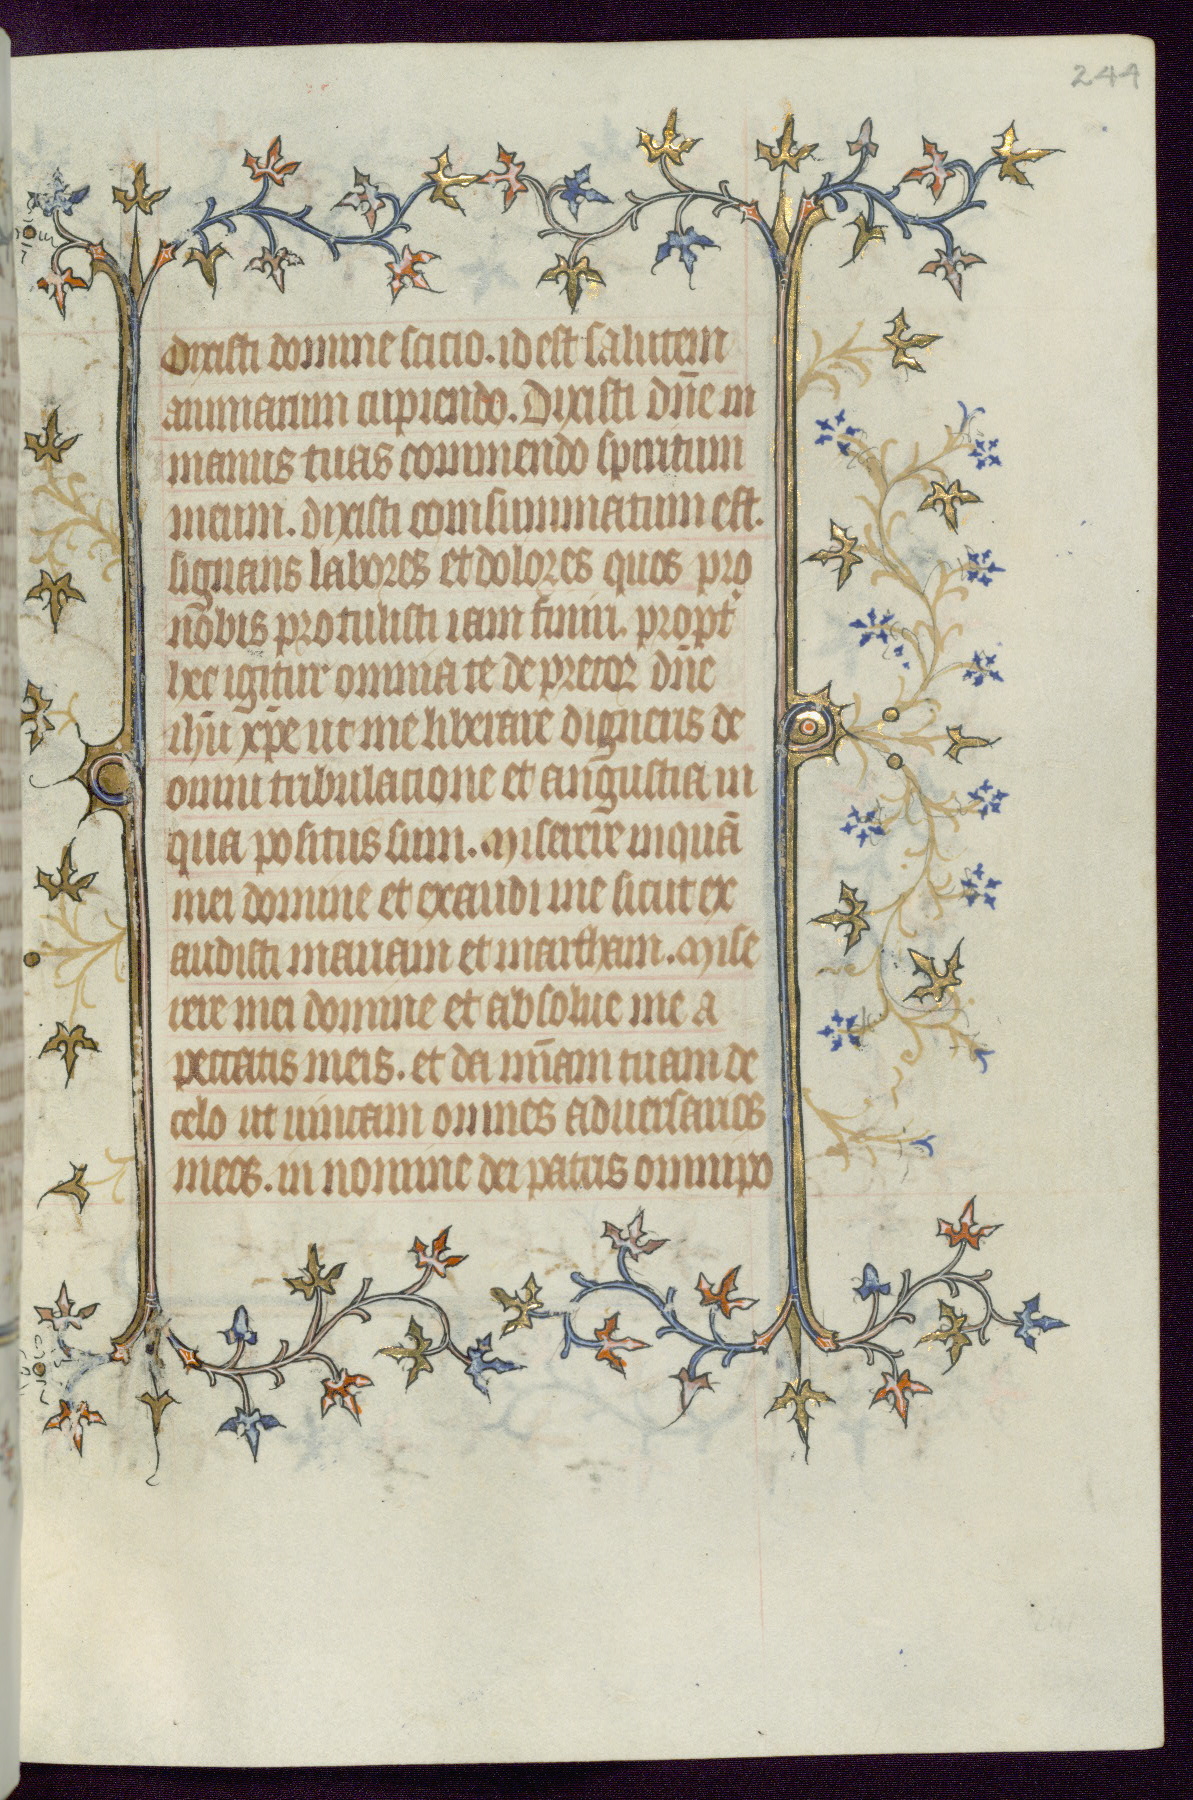 244
Dixisti domine scicio. id est salutem
animarum cupiendo. Dixisti dñe in
manus tuas commendo spiritum
meum. dixisti consummatum est.
signans labores et dolores quos pro
nobis protulisti iam finiri. propt̉
hec igitur omnia te deprecor dñe
ihũ xp̃e ut me liberare digneris de
omni tribulacione et angustia in
qua positus sum. Miserere inquã
mei domine et exaudi me sicut ex
audisti mariam et martham. Mise
rere mei domine et absolue me a
peccatis meis. et da mĩam tuam de
celo ut uincam omnes aduersarios
meos. in nomine dei patris omnipo